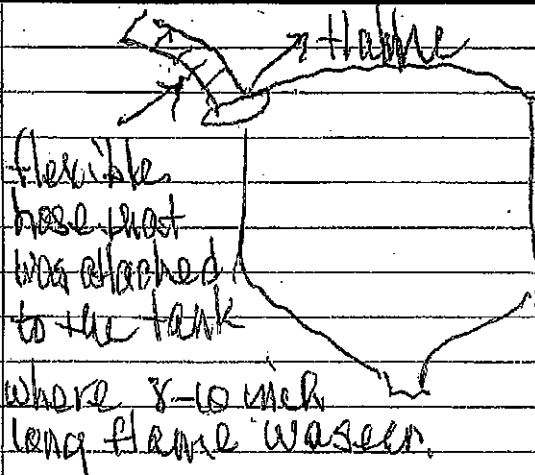 flame
flexible
hose that
was attached
to the tank
where 8-10 inch
long flame was seen.